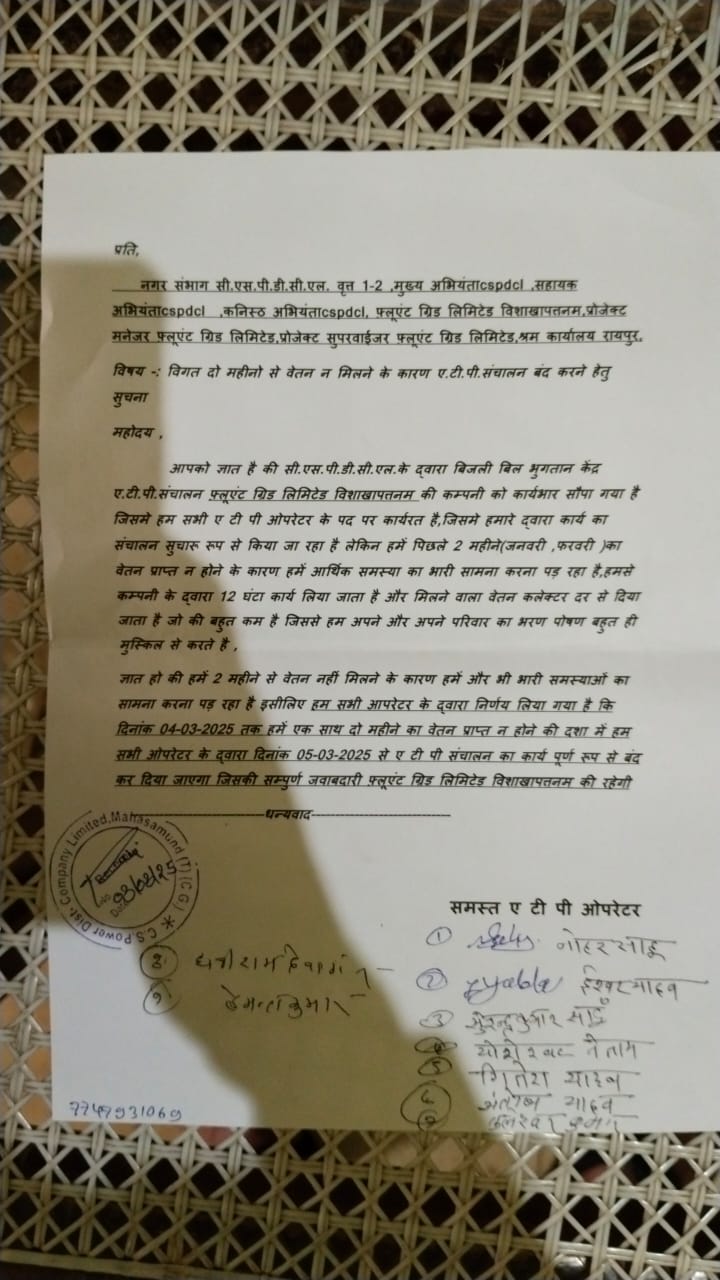 प्रति,
नगर संभाग सी.एस.पी.डी.सी.एल. वृत्त 1-2 ,मुख्य अभियंताcspdcl ,सहायक
अभियंताcspdcl ,कनिस्ठ अभियंताcspdcl, फ्लूएंट ग्रिड लिमिटेड विशाखापत्तनम,प्रोजेक्ट
मनेजर फ्लूएंट ग्रिड लिमिटेड,प्रोजेक्ट सुपरवाईजर फ्लूएंट ग्रिड लिमिटेड,श्रम कार्यालय रायपुर.
विषय -: विगत दो महीनो से वेतन न मिलने के कारण ए.टी.पी.संचालन बंद करने हेतु
सुचना
महोदय ,
आपको ज्ञात है की सी.एस.पी.डी.सी.एल.के द्वारा बिजली बिल भुगतान केंद्र
ए.टी.पी.संचालन फ़्लूएंट ग्रिड लिमिटेड विशाखापत्तनम की कम्पनी को कार्यभार सौपा गया है
जिसमे हम सभी ए टी पी ओपरेटर के पद पर कार्यरत है,जिसमे हमारे द्वारा कार्य का
संचालन सुचारू रूप से किया जा रहा है लेकिन हमें पिछले 2 महीने(जनवरी ,फरवरी )का
वेतन प्राप्त न होने के कारण हमें आर्थिक समस्या का भारी सामना करना पड़ रहा है,हमसे
कम्पनी के द्वारा 12 घंटा कार्य लिया जाता है और मिलने वाला वेतन कलेक्टर दर से दिया
जाता है जो की बहुत कम है जिससे हम अपने और अपने परिवार का भरण पोषण बहुत ही
मुस्किल से करते है ,
ज्ञात हो की हमें 2 महीने से वेतन नहीं मिलने के कारण हमें और भी भारी समस्याओं का
सामना करना पड़ रहा है इसीलिए हम सभी आपरेटर के द्वारा निर्णय लिया गया है कि
दिनांक 04-03-2025 तक हमें एक साथ दो महीने का वेतन प्राप्त न होने की दशा में हम
सभी ओपरेटर के द्वारा दिनांक 05-03-2025 से ए टी पी संचालन का कार्य पूर्ण रूप से बंद
कर दिया जाएगा जिसकी सम्पुर्ण जवाबदारी फ़्लूएंट ग्रिड लिमिटेड विशाखापत्तनम की रहेगी
----------------------------धन्यवाद--------------------------------
C.S.Power Dist. Company Limited, Mahasamund (T) (C.G.)
समस्त ए टी पी ओपरेटर
① नोहर साहू
② ईश्वर यादव
③ कुमार साहू
④ नेताम
⑤ यादव
⑥ यादव
⑦ कुमार
⑧
⑨ हेमन्त कुमार
7747931069